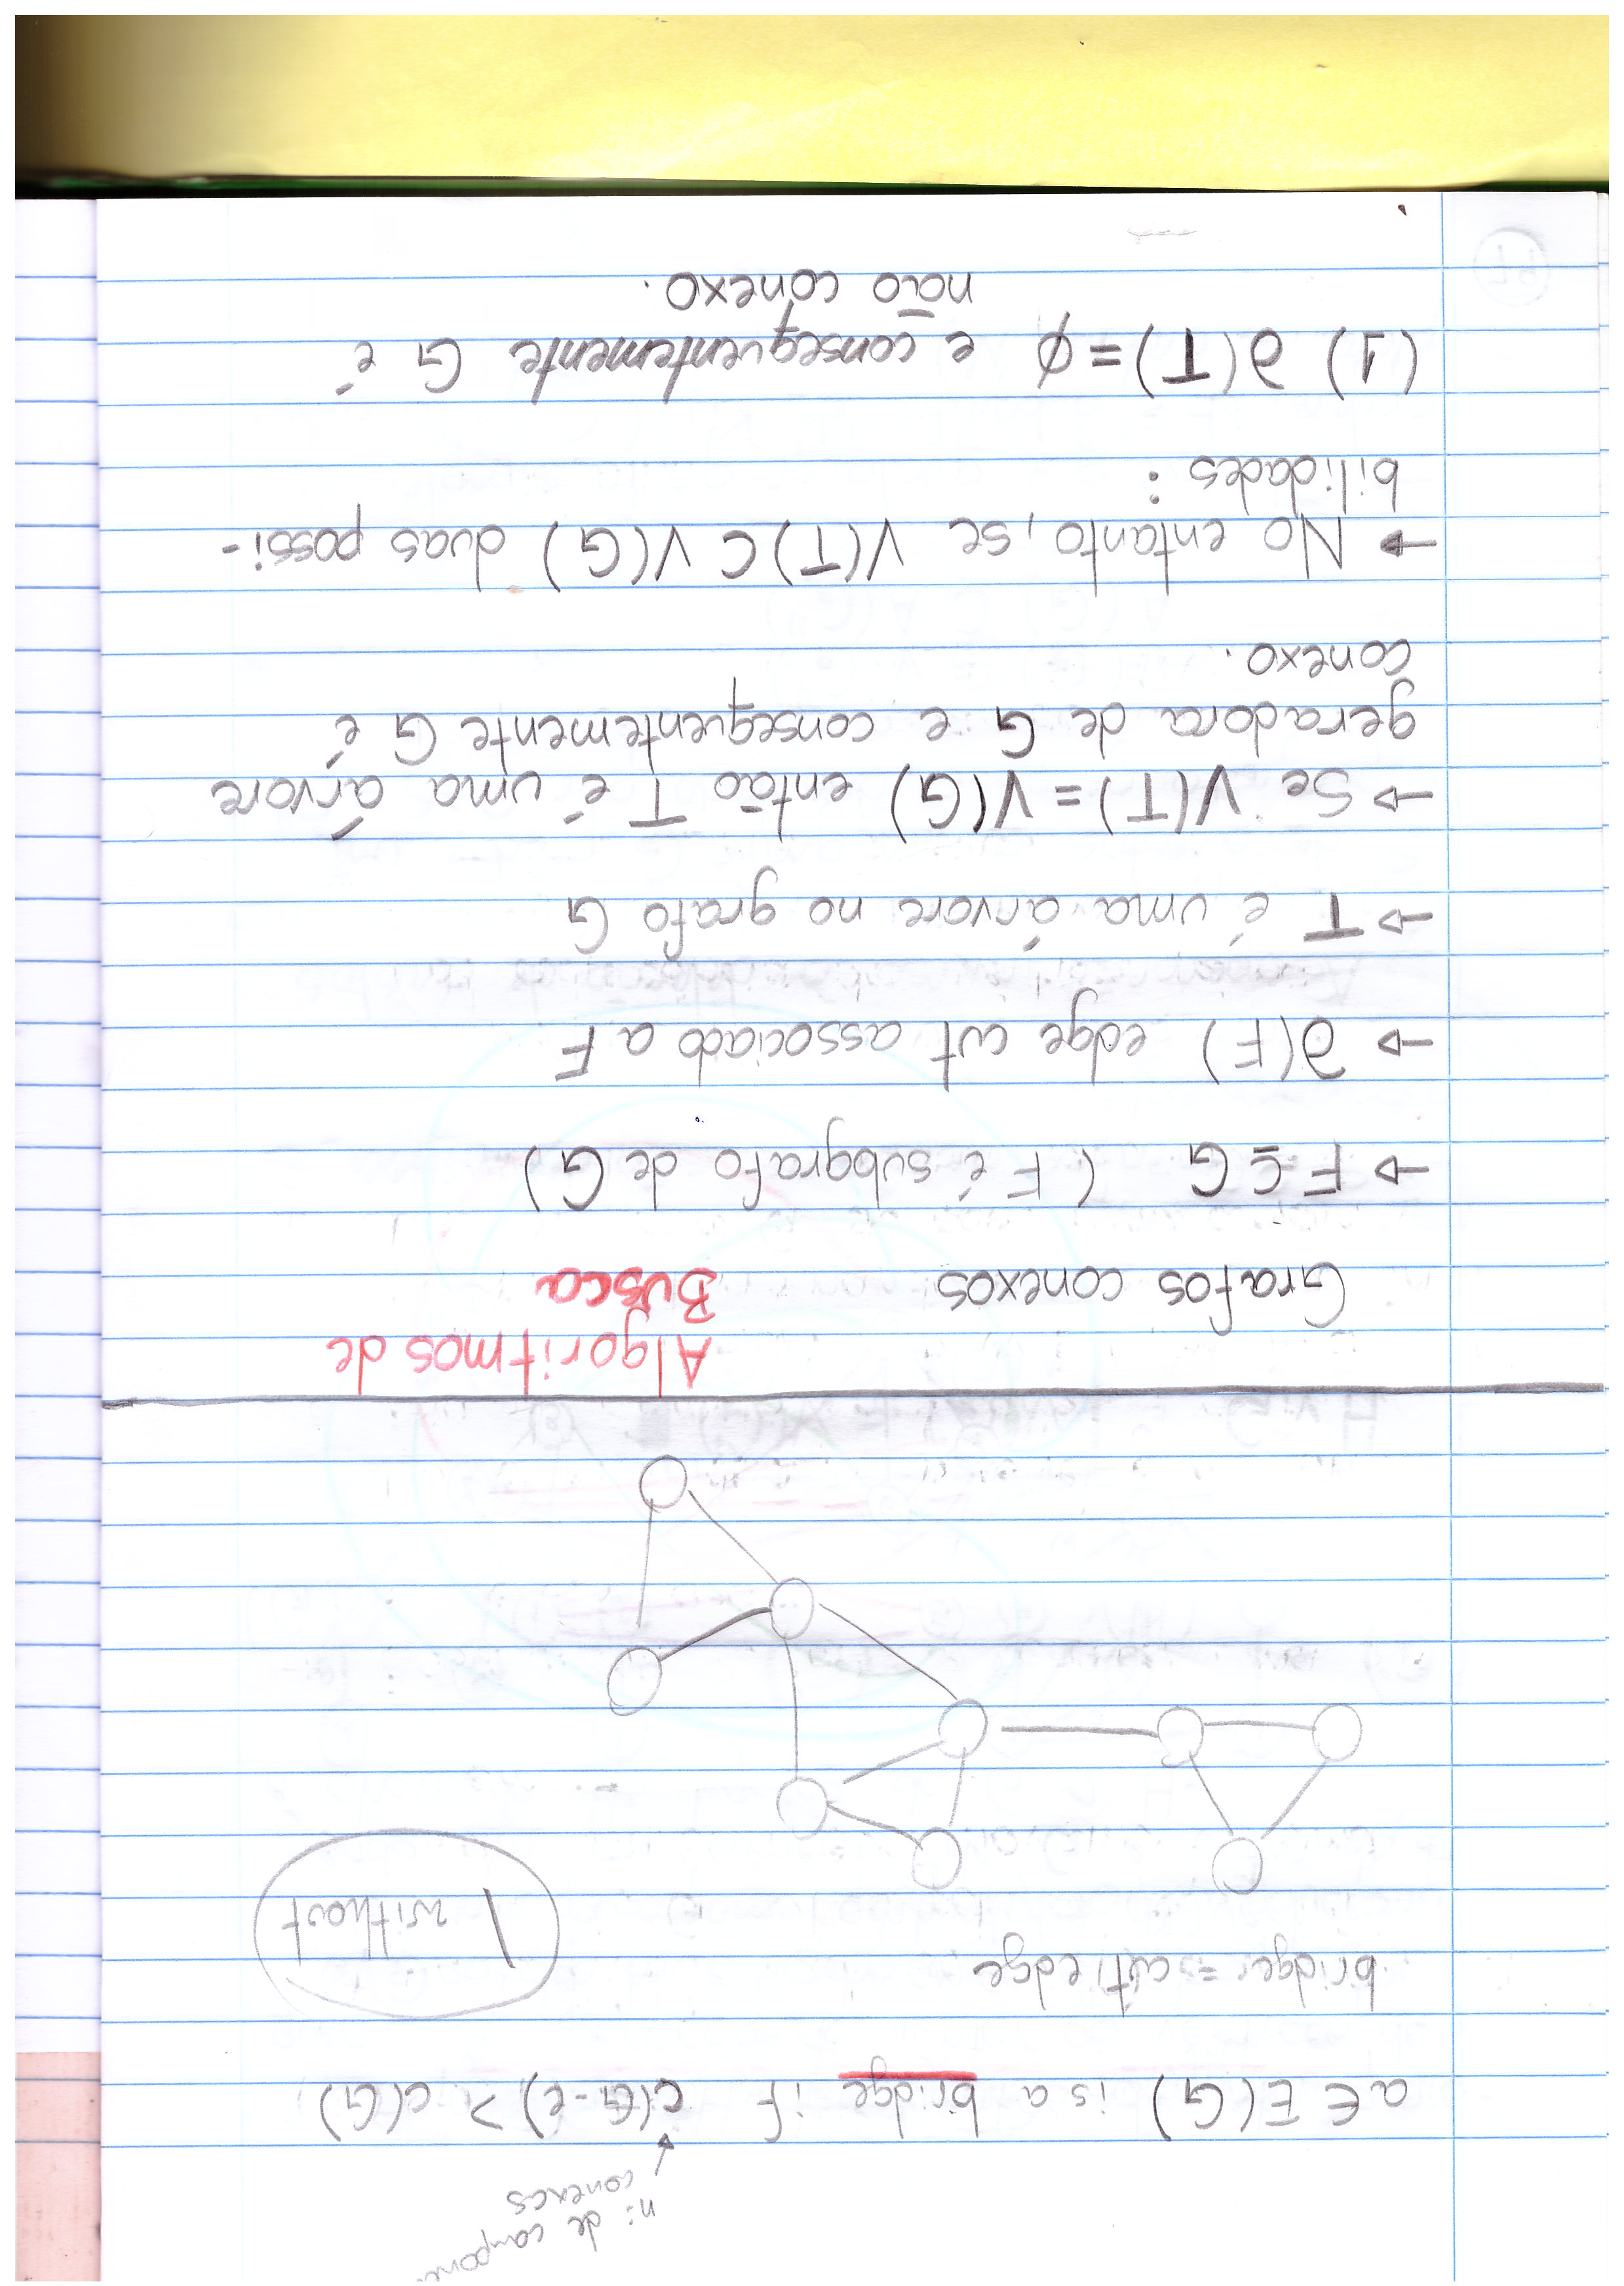 nº de compone
conexas
a ∈ E(G) is a bridge if c(G-e) > c(G)
bridge = cut edge
\ without
Algoritmos de
Busca
Grafos conexos
→ F ⊆ G (F é subgrafo de G)
→ ∂(F) edge cut associado a F
→ T é uma árvore no grafo G
→ Se V(T) = V(G) então T é uma árvore
geradora de G e consequentemente G é
conexo.
→ No entanto, se V(T) ⊂ V(G) duas possi-
bilidades:
(1) ∂(T) = ∅ e consequentemente G é
não conexo.